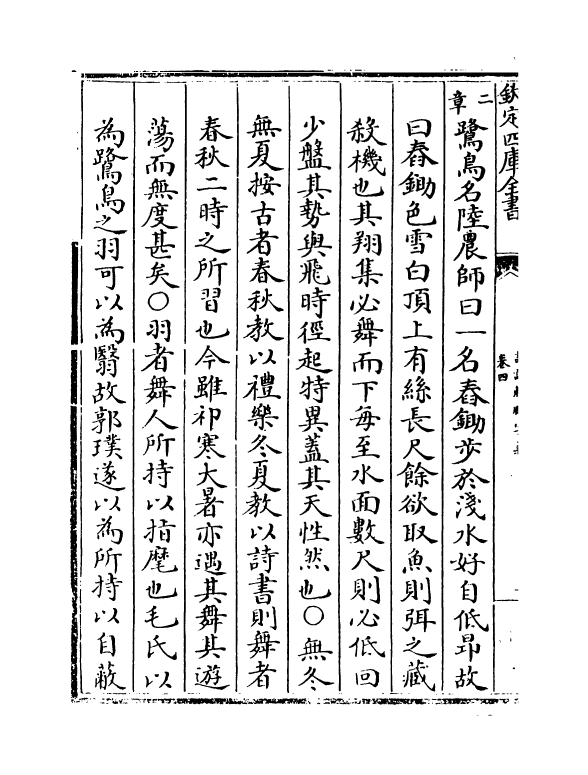 欽定四庫全書
卷四
二章 鷺鳥名陸農師曰一名舂鋤步於淺水好自低昻故
曰舂鋤色雪白頂上有絲長尺餘欲取魚則弭之藏
殺機也其翔集必舞而下每至水面數尺則必低回
少盤其勢與飛時徑起特異蓋其天性然也○無冬
無夏按古者春秋教以禮樂冬夏教以詩書則舞者
春秋二時之所習也今雖祁寒大暑亦遇其舞其遊
蕩而無度甚矣○羽者舞人所持以指麾也毛氏以
為鷺鳥之羽可以為翳故郭璞遂以為所持以自蔽